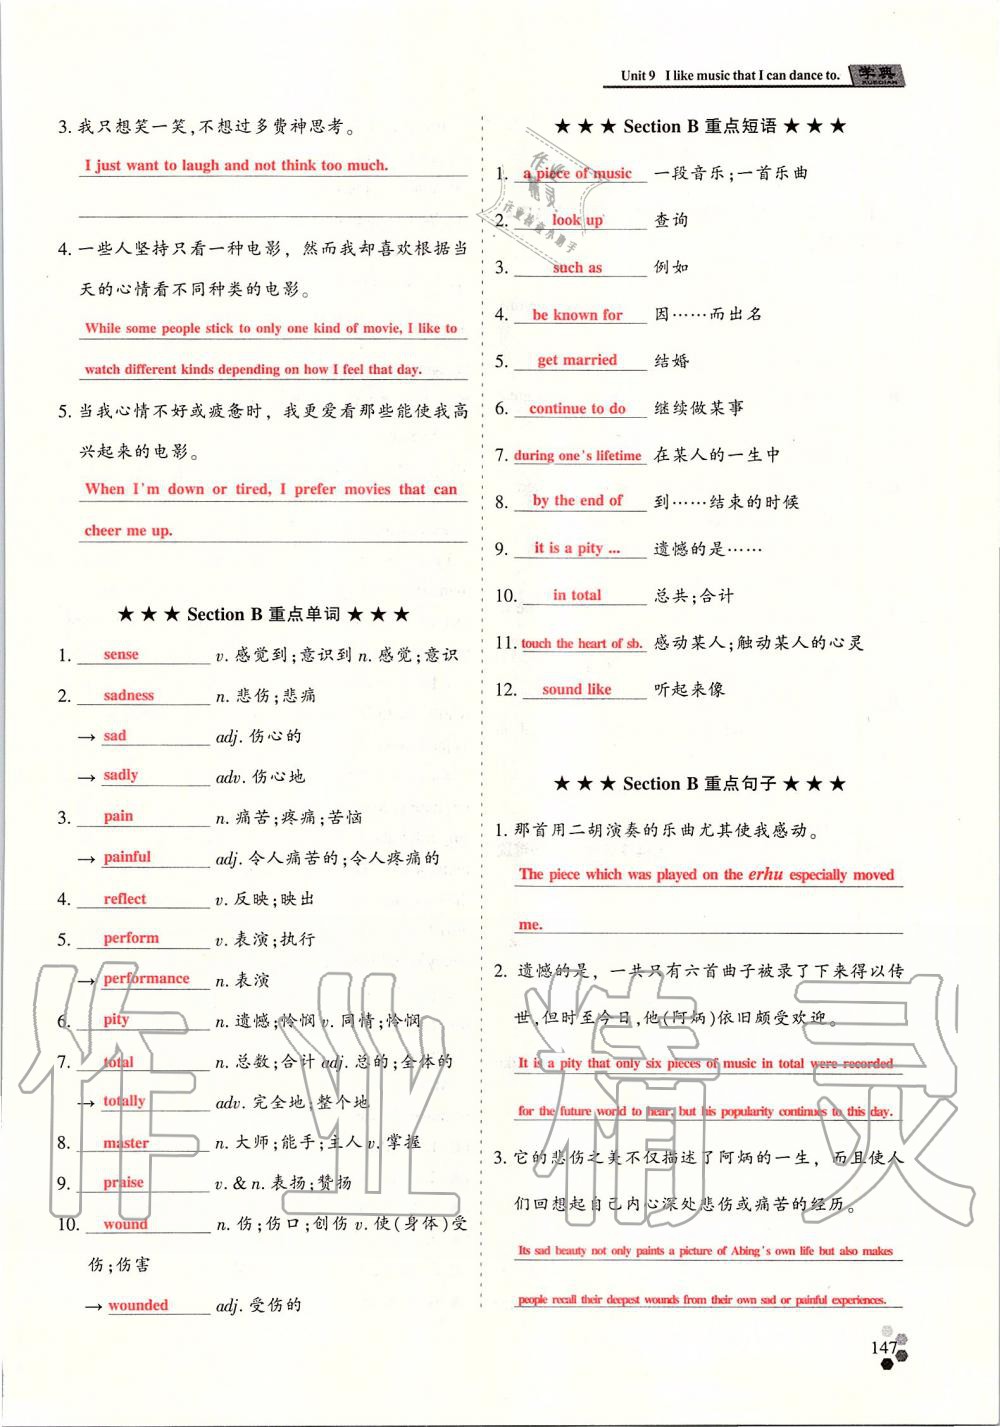 Unit 9 I like music that I can dance to.
学典
XUEDIAN
3. 我只想笑一笑,不想过多费神思考。
I just want to laugh and not think too much.
4. 一些人坚持只看一种电影，然而我却喜欢根据当
天的心情看不同种类的电影。
While some people stick to only one kind of movie, I like to
watch different kinds depending on how I feel that day.
5. 当我心情不好或疲惫时，我更爱看那些能使我高
兴起来的电影。
When I'm down or tired, I prefer movies that can
cheer me up.
★ ★ ★ Section B 重点单词 ★ ★ ★
1. sense v. 感觉到;意识到 n. 感觉;意识
2. sadness n. 悲伤;悲痛
→ sad adj. 伤心的
→ sadly adv. 伤心地
3. pain n. 痛苦;疼痛;苦恼
→ painful adj. 令人痛苦的;令人疼痛的
4. reflect v. 反映;映出
5. perform v. 表演;执行
→ performance n. 表演
6. pity n. 遗憾;怜悯 v. 同情;怜悯
7. total n. 总数;合计 adj. 总的;全体的
→ totally adv. 完全地;整个地
8. master n. 大师;能手;主人 v. 掌握
9. praise v. & n. 表扬;赞扬
10. wound n. 伤;伤口;创伤 v. 使(身体)受
伤;伤害
→ wounded adj. 受伤的
★ ★ ★ Section B 重点短语 ★ ★ ★
1. a piece of music 一段音乐;一首乐曲
2. look up 查询
3. such as 例如
4. be known for 因……而出名
5. get married 结婚
6. continue to do 继续做某事
7. during one's lifetime 在某人的一生中
8. by the end of 到……结束的时候
9. it is a pity ... 遗憾的是……
10. in total 总共;合计
11. touch the heart of sb. 感动某人;触动某人的心灵
12. sound like 听起来像
★ ★ ★ Section B 重点句子 ★ ★ ★
1. 那首用二胡演奏的乐曲尤其使我感动。
The piece which was played on the erhu especially moved
me.
2. 遗憾的是，一共只有六首曲子被录了下来得以传
世,但时至今日,他(阿炳)依旧颇受欢迎。
It is a pity that only six pieces of music in total were recorded
for the future world to hear, but his popularity continues to this day.
3. 它的悲伤之美不仅描述了阿炳的一生，而且使人
们回想起自己内心深处悲伤或痛苦的经历。
Its sad beauty not only paints a picture of Abing's own life but also makes
people recall their deepest wounds from their own sad or painful experiences.
147
作业精灵
作业精灵
作业检查小助手